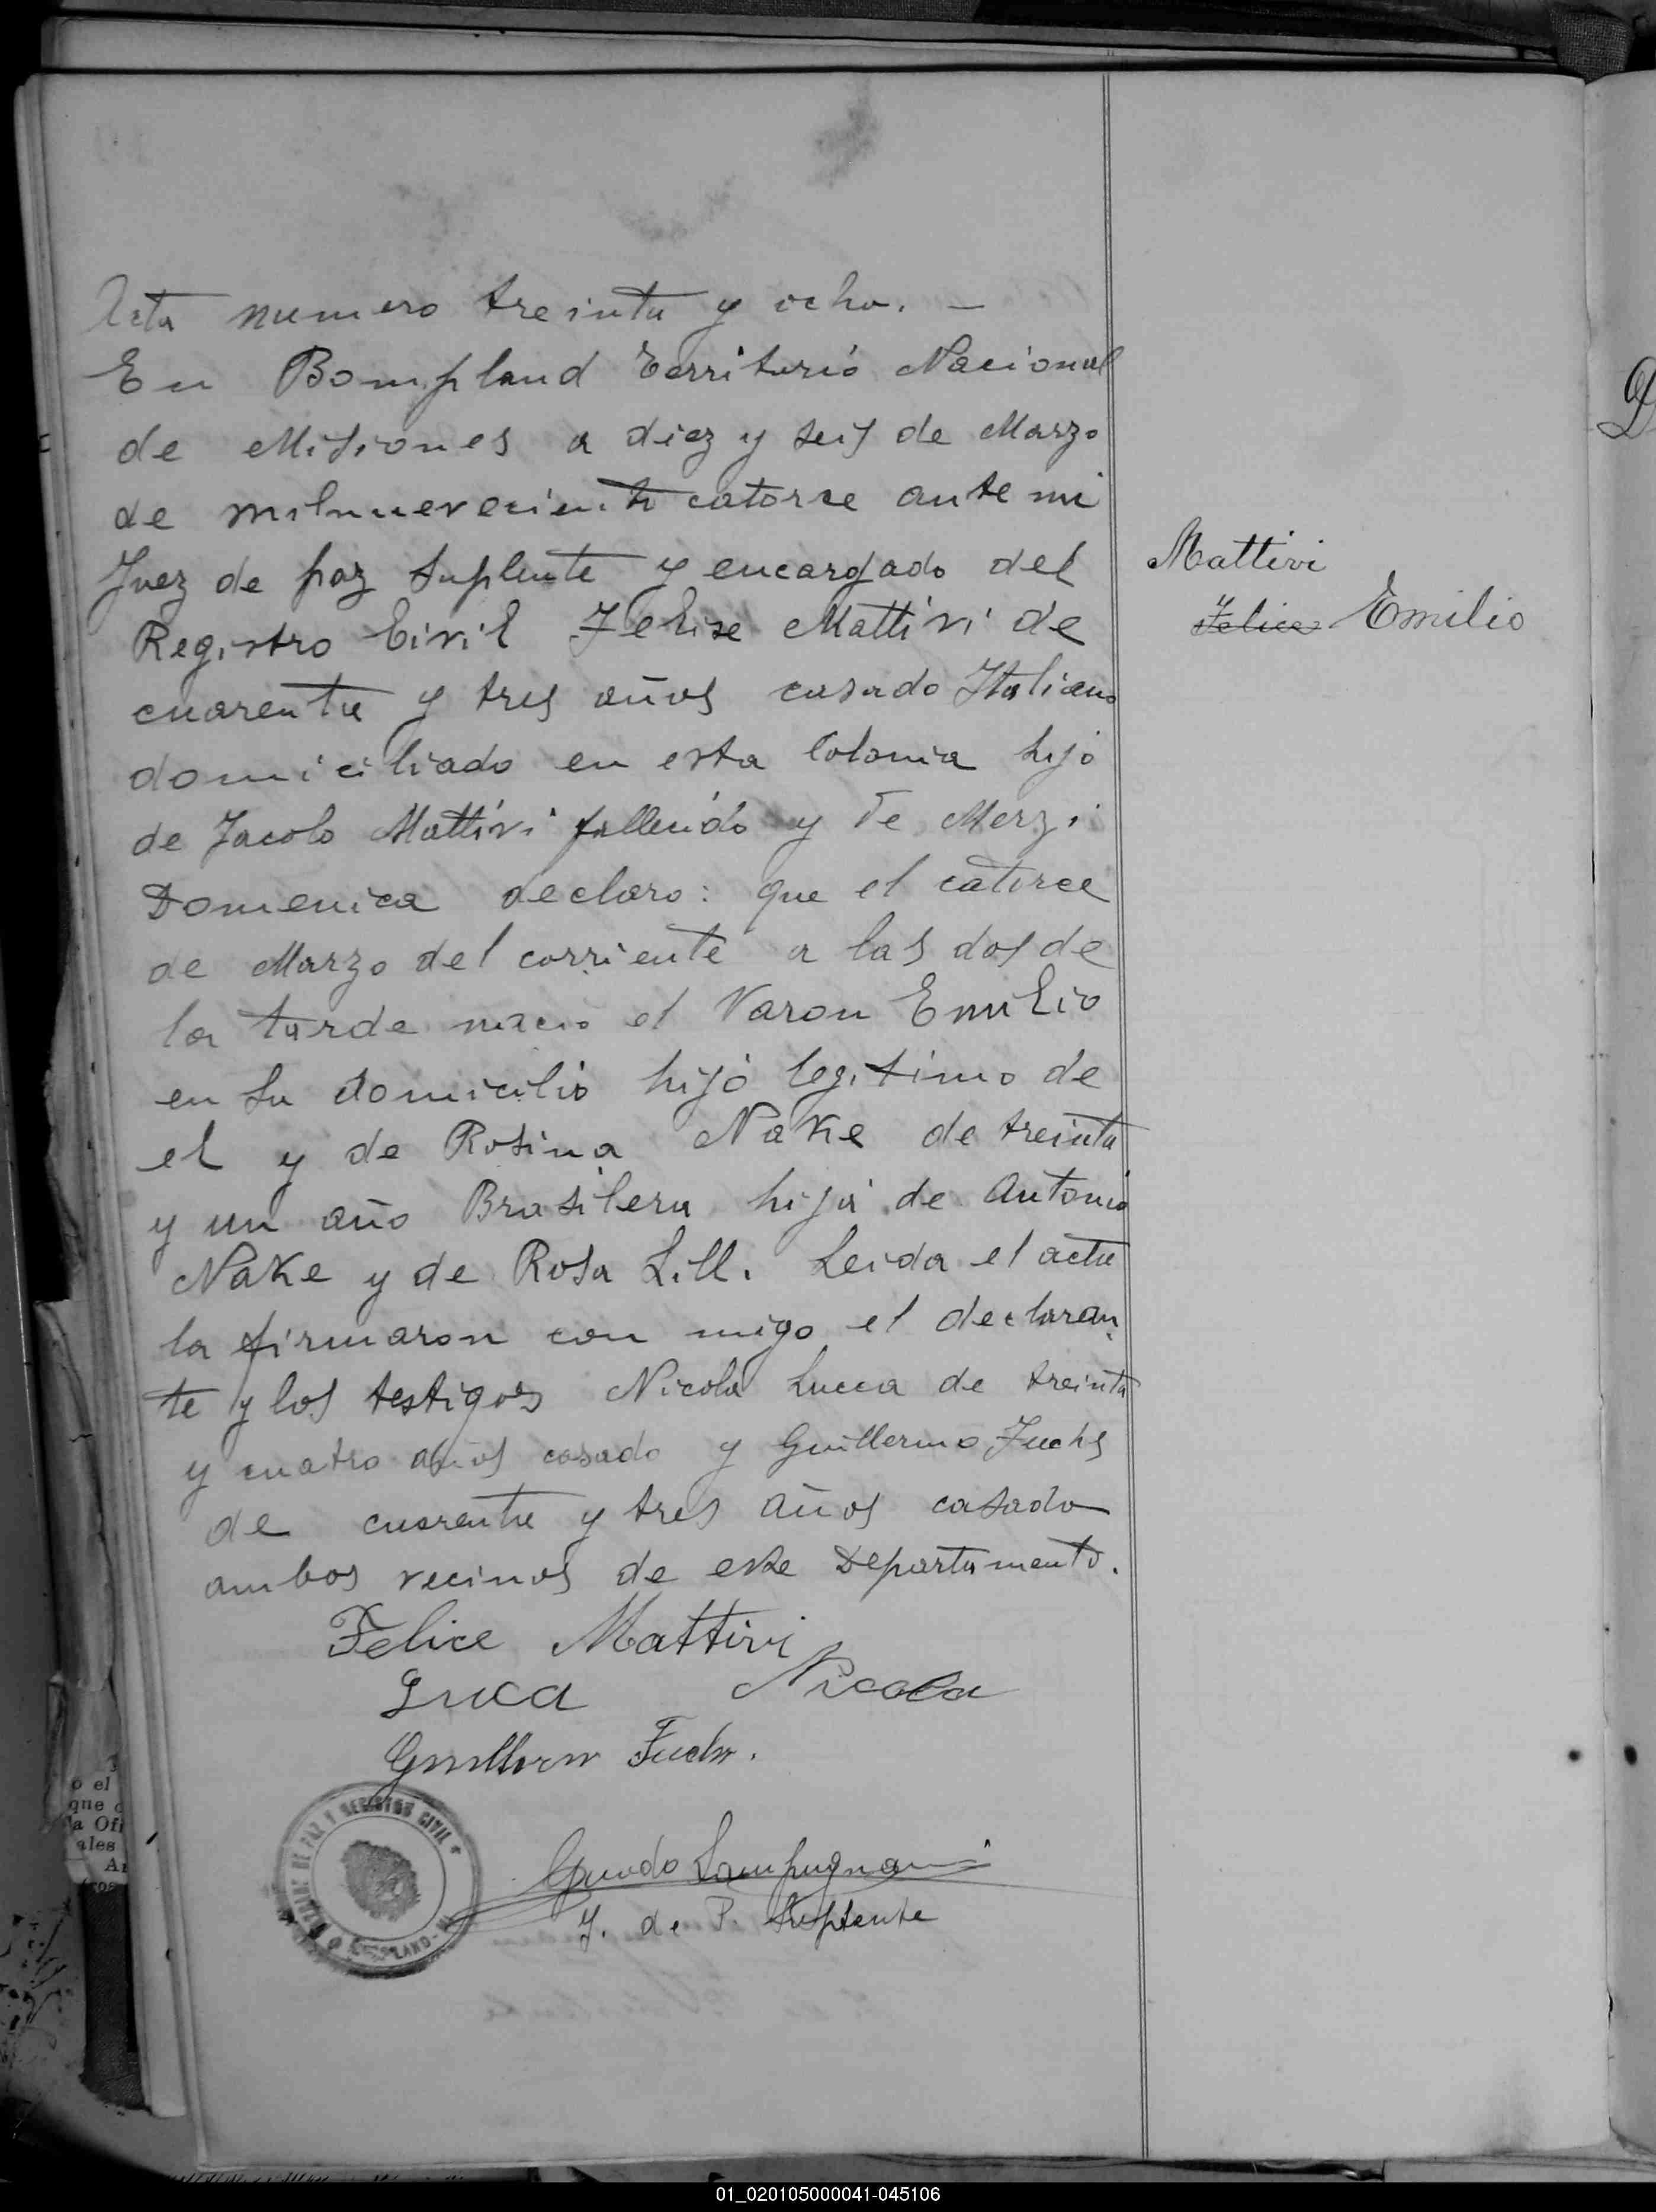 Acta numero treinta y ocho. —
En Bompland Territorio Nacional
de Misiones a diez y seis de Marzo
de milnuevecientos catorce ante mi
Juez de paz Suplente y encargado del
Registro Civil Felise Mattivi de
cuarenta y tres años casado Italiano
domiciliado en esta Colonia hijo
de Jacolo Mattivi fallecido y de Merzi
Domenica declaro: que el catorce
de Marzo del corriente a las dos de
la tarde nacio el Varon Emilio
en su domicilio hijo legitimo de
el y de Rosina Nake de treinta
y un año Brasilera hija de Antonio
Nake y de Rosa Lill. Leida el acta
la firmaron con migo el declaran
te y los testigos Nicola Lucca de treinta
y cuatro años casado y Guillermo Fuchs
de cuarenta y tres años casado
ambos vecinos de este Departamento.
Felice Mattivi
Luca Nicola
Guillermo Fuchs.
Guido Lampugnani
J. de P. Suplente
JUZGADO DE PAZ Y REGISTRO CIVIL
BOMPLAND
Mattivi
Felice Emilio
o el
que
la Ofi
ales
01_020105000041-045106